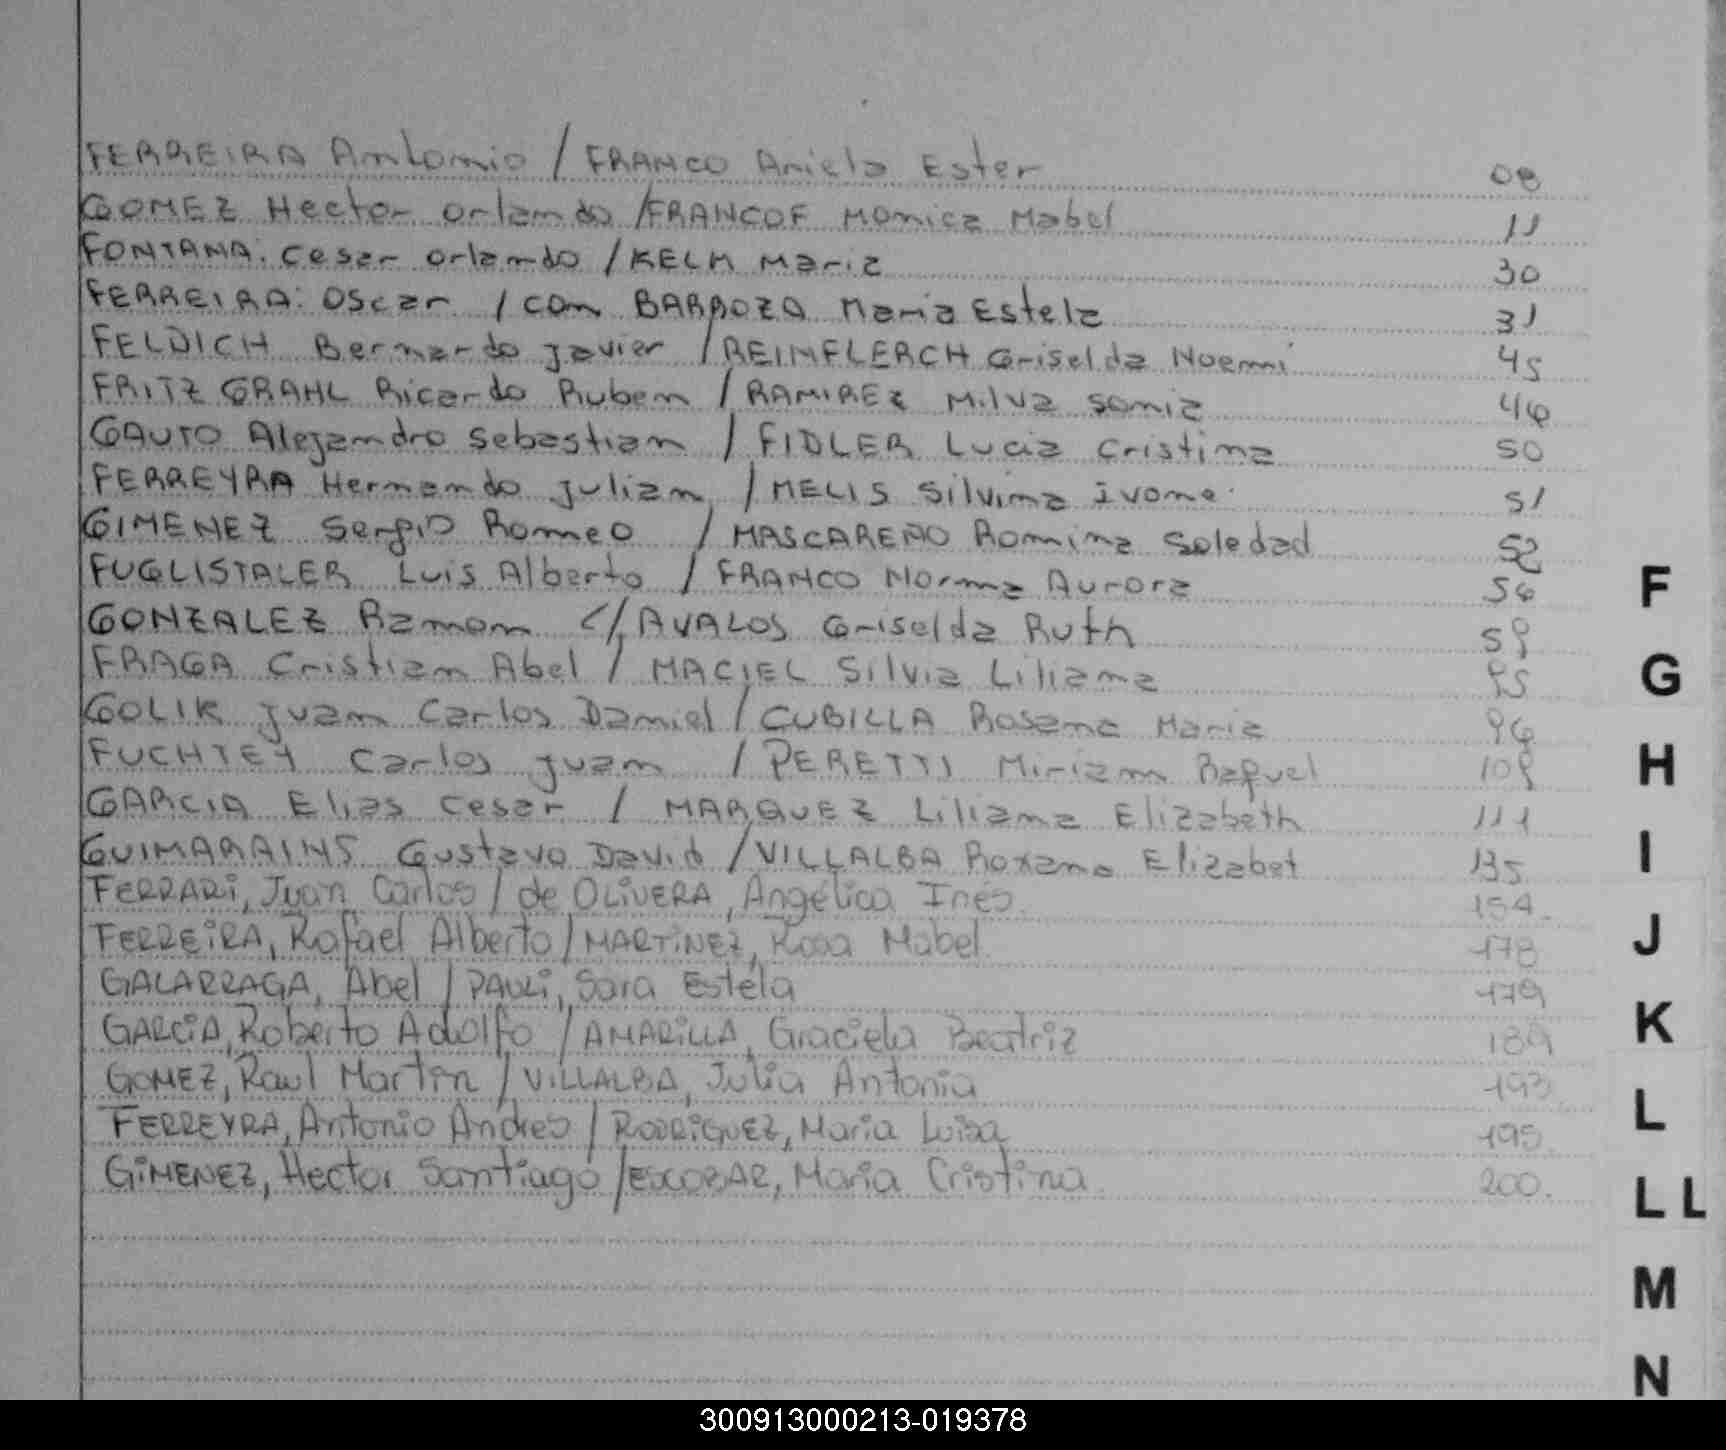 FERREIRA Antonio / FRANCO Ariela Ester 08
GOMEZ Hector Orlando / FRANCOF Monica Mabel 11
FONTANA: Cesar Orlando / KELM Maria 30
FERREIRA: Oscar / con BARBOZA Maria Estela 31
FELDICH Bernardo Javier / REINFLERCH Griselda Noemi 45
FRITZ GRAHL Ricardo Ruben / RAMIREZ Milva Sonia 46
GAUTO Alejandro Sebastian / FIDLER Lucia Cristina 50
FERREYRA Hernando Julian / MELIS Silvina Ivone 51
GIMENEZ Sergio Romeo / MASCAREÑO Romina Soledad 52
FUGLISTALER Luis Alberto / FRANCO Norma Aurora 56
GONZALEZ Ramon C/ AVALOS Griselda Ruth 59
FRAGA Cristian Abel / MACIEL Silvia Liliana 95
GOLIK Juan Carlos Daniel / CUBILLA Rosana Maria 96
FUCHTEY Carlos Juan / PERETTI Miriam Raquel 109
GARCIA Elias Cesar / MARQUEZ Liliana Elizabeth 111
GUIMARAINS Gustavo David / VILLALBA Roxana Elizabet 135
FERRARI, Juan Carlos / de OLIVERA, Angélica Inés. 154.
FERREIRA, Rafael Alberto / MARTINEZ, Rosa Mabel. 178
GALARRAGA, Abel / PAULI, Sara Estela 179
GARCIA, Roberto Adolfo / AMARILLA, Graciela Beatriz 189
GOMEZ, Raul Martin / VILLALBA, Julia Antonia 193
FERREYRA, Antonio Andres / RODRIGUEZ, Maria Luisa 195.
GIMENEZ, Hector Santiago / ESCOBAR, Maria Cristina. 200.
F
G
H
I
J
K
L
LL
M
N
300913000213-019378